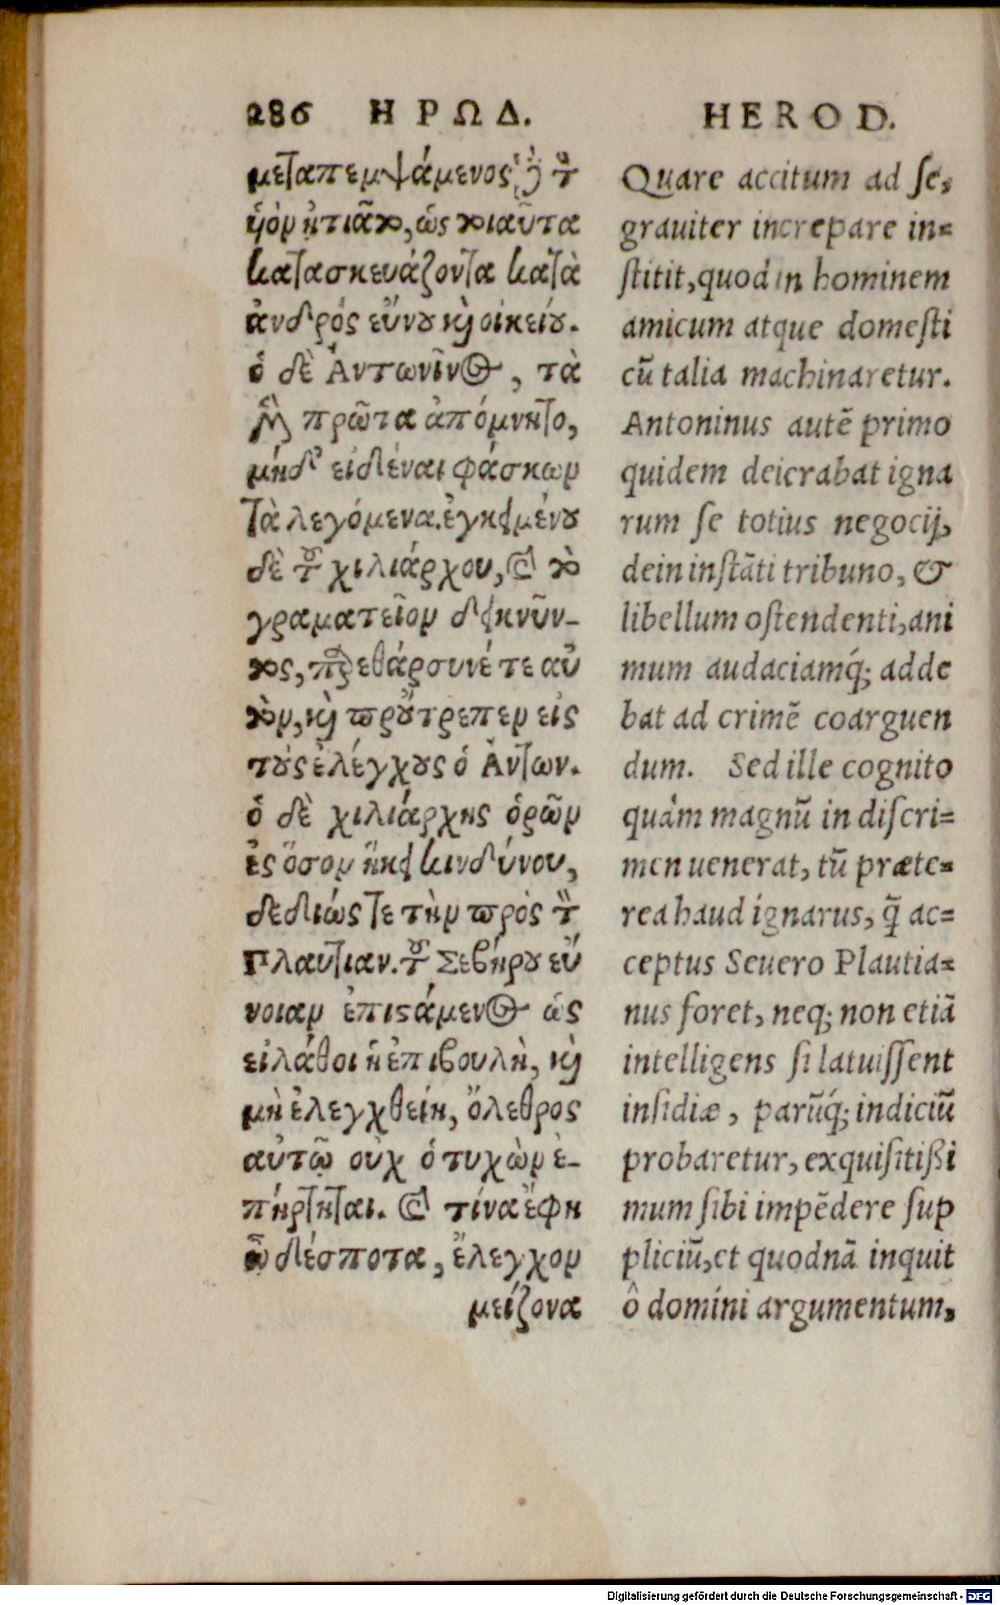 286 ΗΡΩΔ.
μεταπεμψάμενος οὖν τὸν
ὑὸν ᾐτιᾶτο, ὡς τοιαῦτα
κατασκευάζοντα κατὰ
ἀνδρός εὔνου καὶ οἰκείου.
ὁ δὲ Ἀντωνῖνος, τὰ
μὲν πρῶτα ἀπόμνητο,
μήδ' εἰδέναι φάσκων
τὰ λεγόμενα. ἐγκειμένου
δὲ τοῦ χιλιάρχου, καὶ τὸ
γραματεῖον δεικνῦν-
τος, παρεθάρσυνέ τε αὐ
τὸν, καὶ προὔτρεπεν εἰς
τοὺς ἐλέγχους ὁ Ἀντων.
ὁ δὲ χιλιάρχης ὁρῶν
ἐς ὅσον ἥκει κινδύνου,
δεδιώς τε τὴν πρὸς τὸν
Πλαυτιαν. τοῦ Σεβήρου εὔ
νοιαν ἐπιστάμενος ὡς
εἰλάθοι ἡ ἐπιβουλὴ, καὶ
μὴ ἐλεγχθείη, ὄλεθρος
αὐτῷ οὐχ ὁ τυχὼν ἐ-
πήρτηται. καὶ τίνα ἔφη
ὦ δέσποτα, ἔλεγχον
μείζονα
HEROD.
Quare accitum ad se,
grauiter increpare in=
stitit, quod in hominem
amicum atque domesti
cũ talia machinaretur.
Antoninus autẽ primo
quidem deierabat igna
rum se totius negocij,
dein instãti tribuno, &
libellum ostendenti, ani
mum audaciamq́; adde
bat ad crimẽ coarguen
dum. Sed ille cognito
quàm magnũ in discri=
men uenerat, tũ præte=
rea haud ignarus, q̃ ac=
ceptus Seuero Plautia=
nus foret, neq; non etiã
intelligens si latuissent
insidiæ, parũq́; indiciũ
probaretur, exquisitißi
mum sibi impẽdere sup
pliciũ, et quodnã inquit
ô domini argumentum,
Digitalisierung gefördert durch die Deutsche Forschungsgemeinschaft - DFG